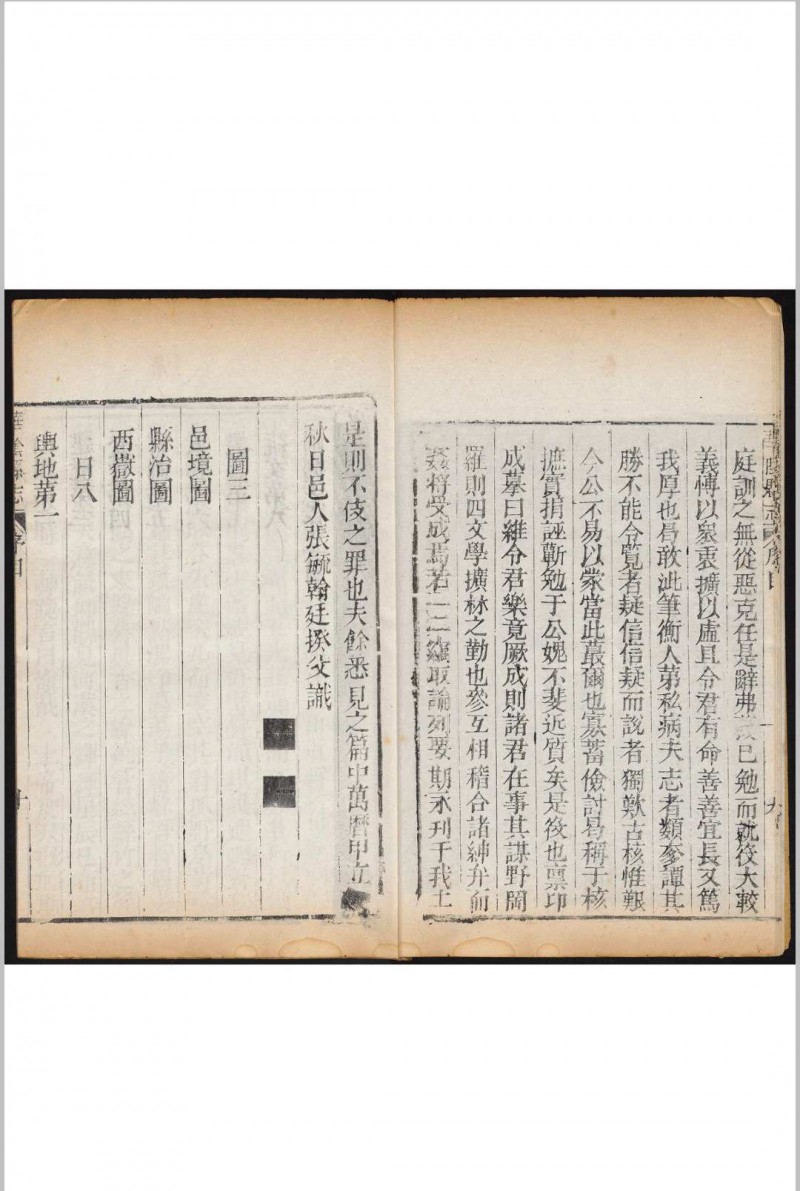 華陰縣志 序目
九
庭訓之無從惡克任是辭弗 已勉而就役大較
義慱以裒衷擴以虛且令君有命善善宜長又篤
我厚也曷敢泚筆衡人第私病夫志者類麥譚其
勝不能令覽者疑信信疑而說者獨歎古核惟艱
今公不易以蒙當此蕞爾也寡蓄儉討曷稱于核
摭實捐誣蘄勉于公媿不斐近質矣是役也禀印
成摹曰維令君樂竟厥成則諸君在事其謀野閎
羅則四文學擴林之勤也參互相稽合諸紳弁前
茲將受成焉若一二 取論列要期永刊于我土
是則不佞之罪也夫餘悉見之篇中萬曆甲
秋日邑人張毓翰廷揆父識
圖三
邑境圖
縣治圖
西嶽圖
目八
輿地第一
華陰縣志 序目
十